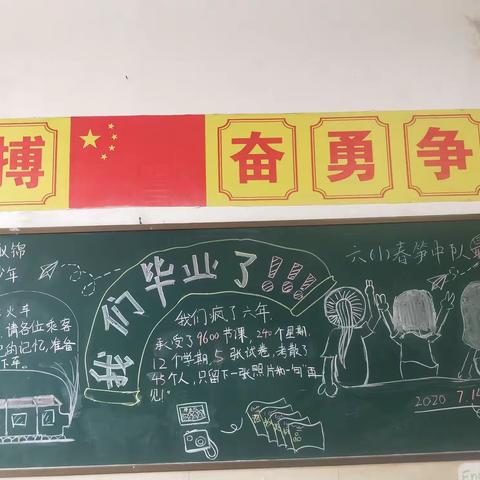 搏 奋 勇 争
六(1)春笋中队
我们毕业了!!!
火车
请各位乘客
的记忆,准备
下车。
我们疯了六年,
承受了9600节课,240个星期,
12个学期,5张试卷,考散了
45个人,只留下一张照片和一句"再
见"。
2020 7.14